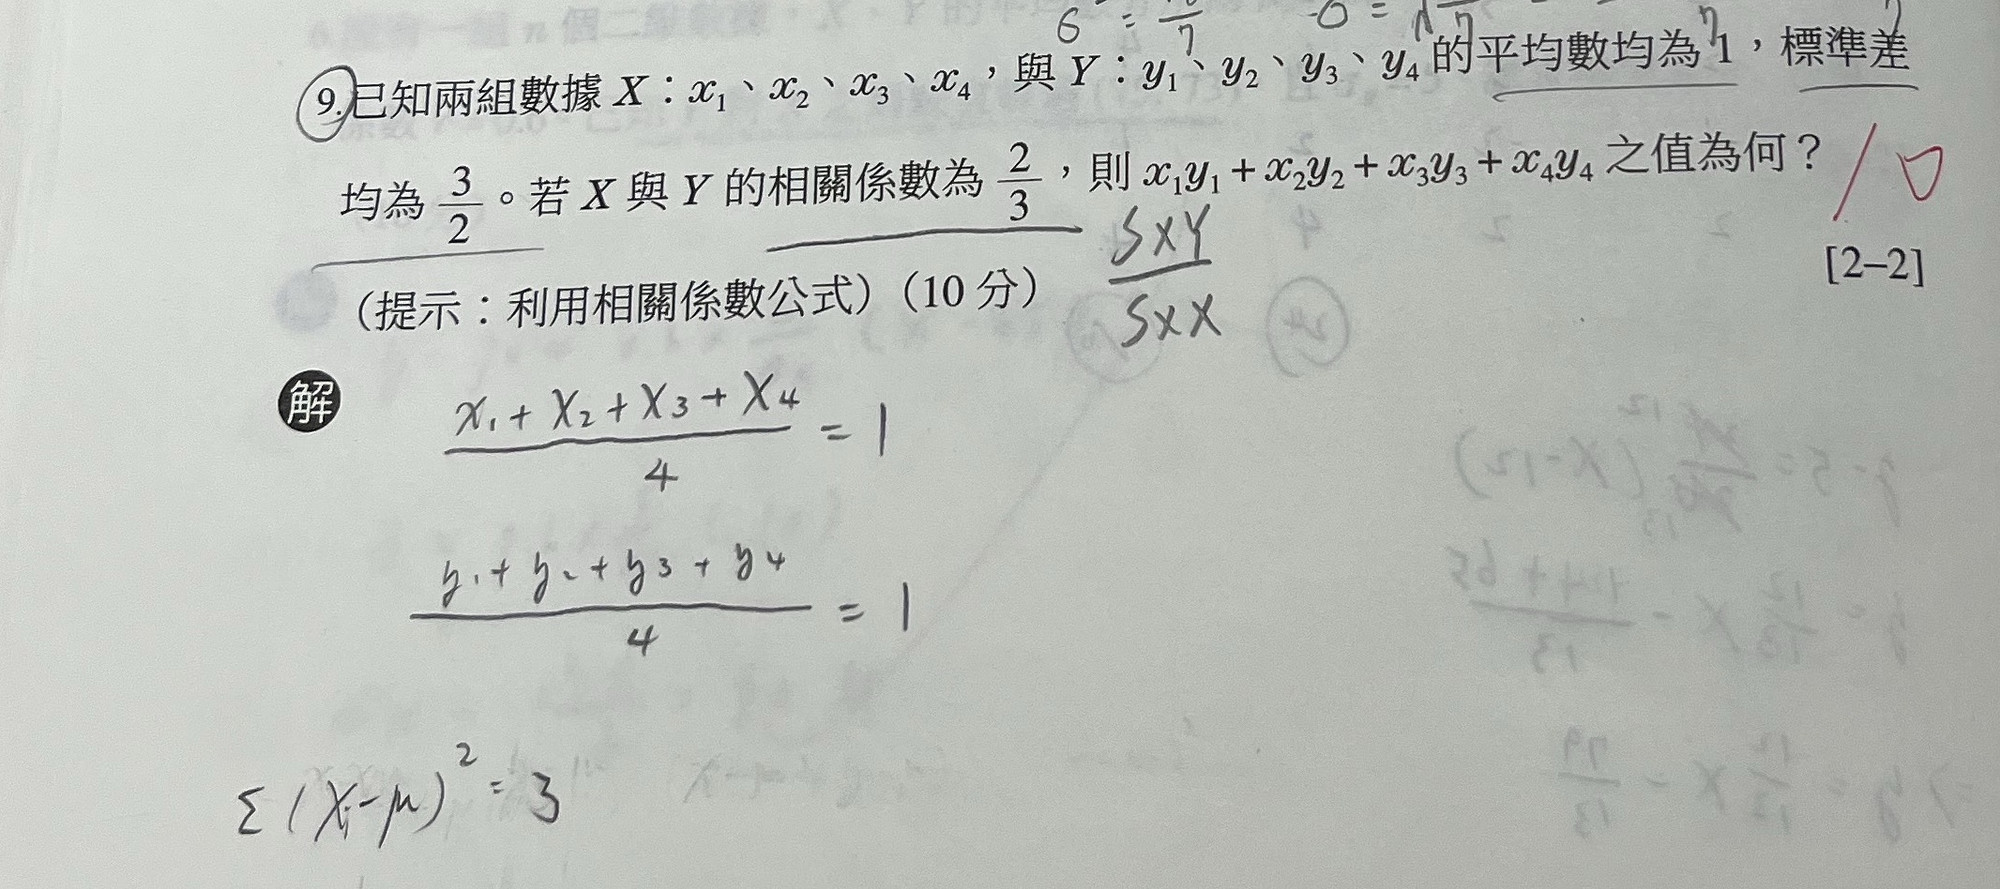 6² = 10/7 σ = √
9. 已知兩組數據 X：x₁、x₂、x₃、x₄，與 Y：y₁、y₂、y₃、y₄ 的平均數均為 1，標準差
均為 3/2。若 X 與 Y 的相關係數為 2/3，則 x₁y₁ + x₂y₂ + x₃y₃ + x₄y₄ 之值為何？ /0
[2–2]
（提示：利用相關係數公式）（10 分）
SXY/SXX
解
(x₁ + x₂ + x₃ + x₄)/4 = 1
(y₁ + y₂ + y₃ + y₄)/4 = 1
Σ(xᵢ-μ)² = 3